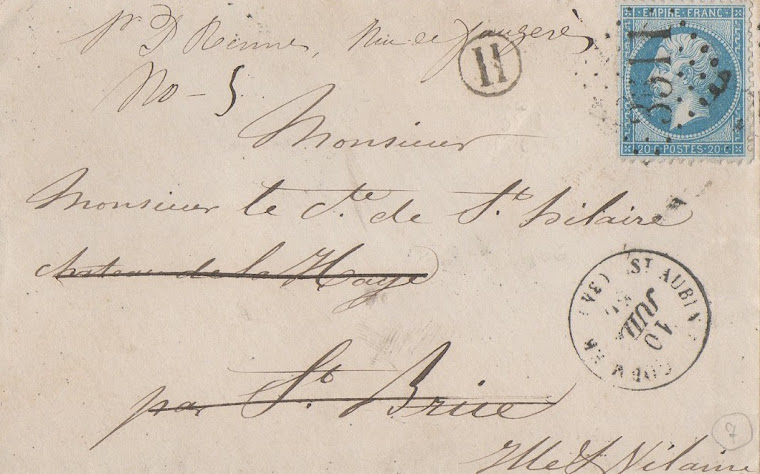 pr D Rennes, Rue de Fougères
No - 5
H
EMPIRE FRANC
3511
20 C POSTES 20 C
Monsieur
Monsieur le Cte de St hilaire
chateau de la Haye
ST AUBIN
10
JUIL
par St Brice
Ille & Vilaine
7